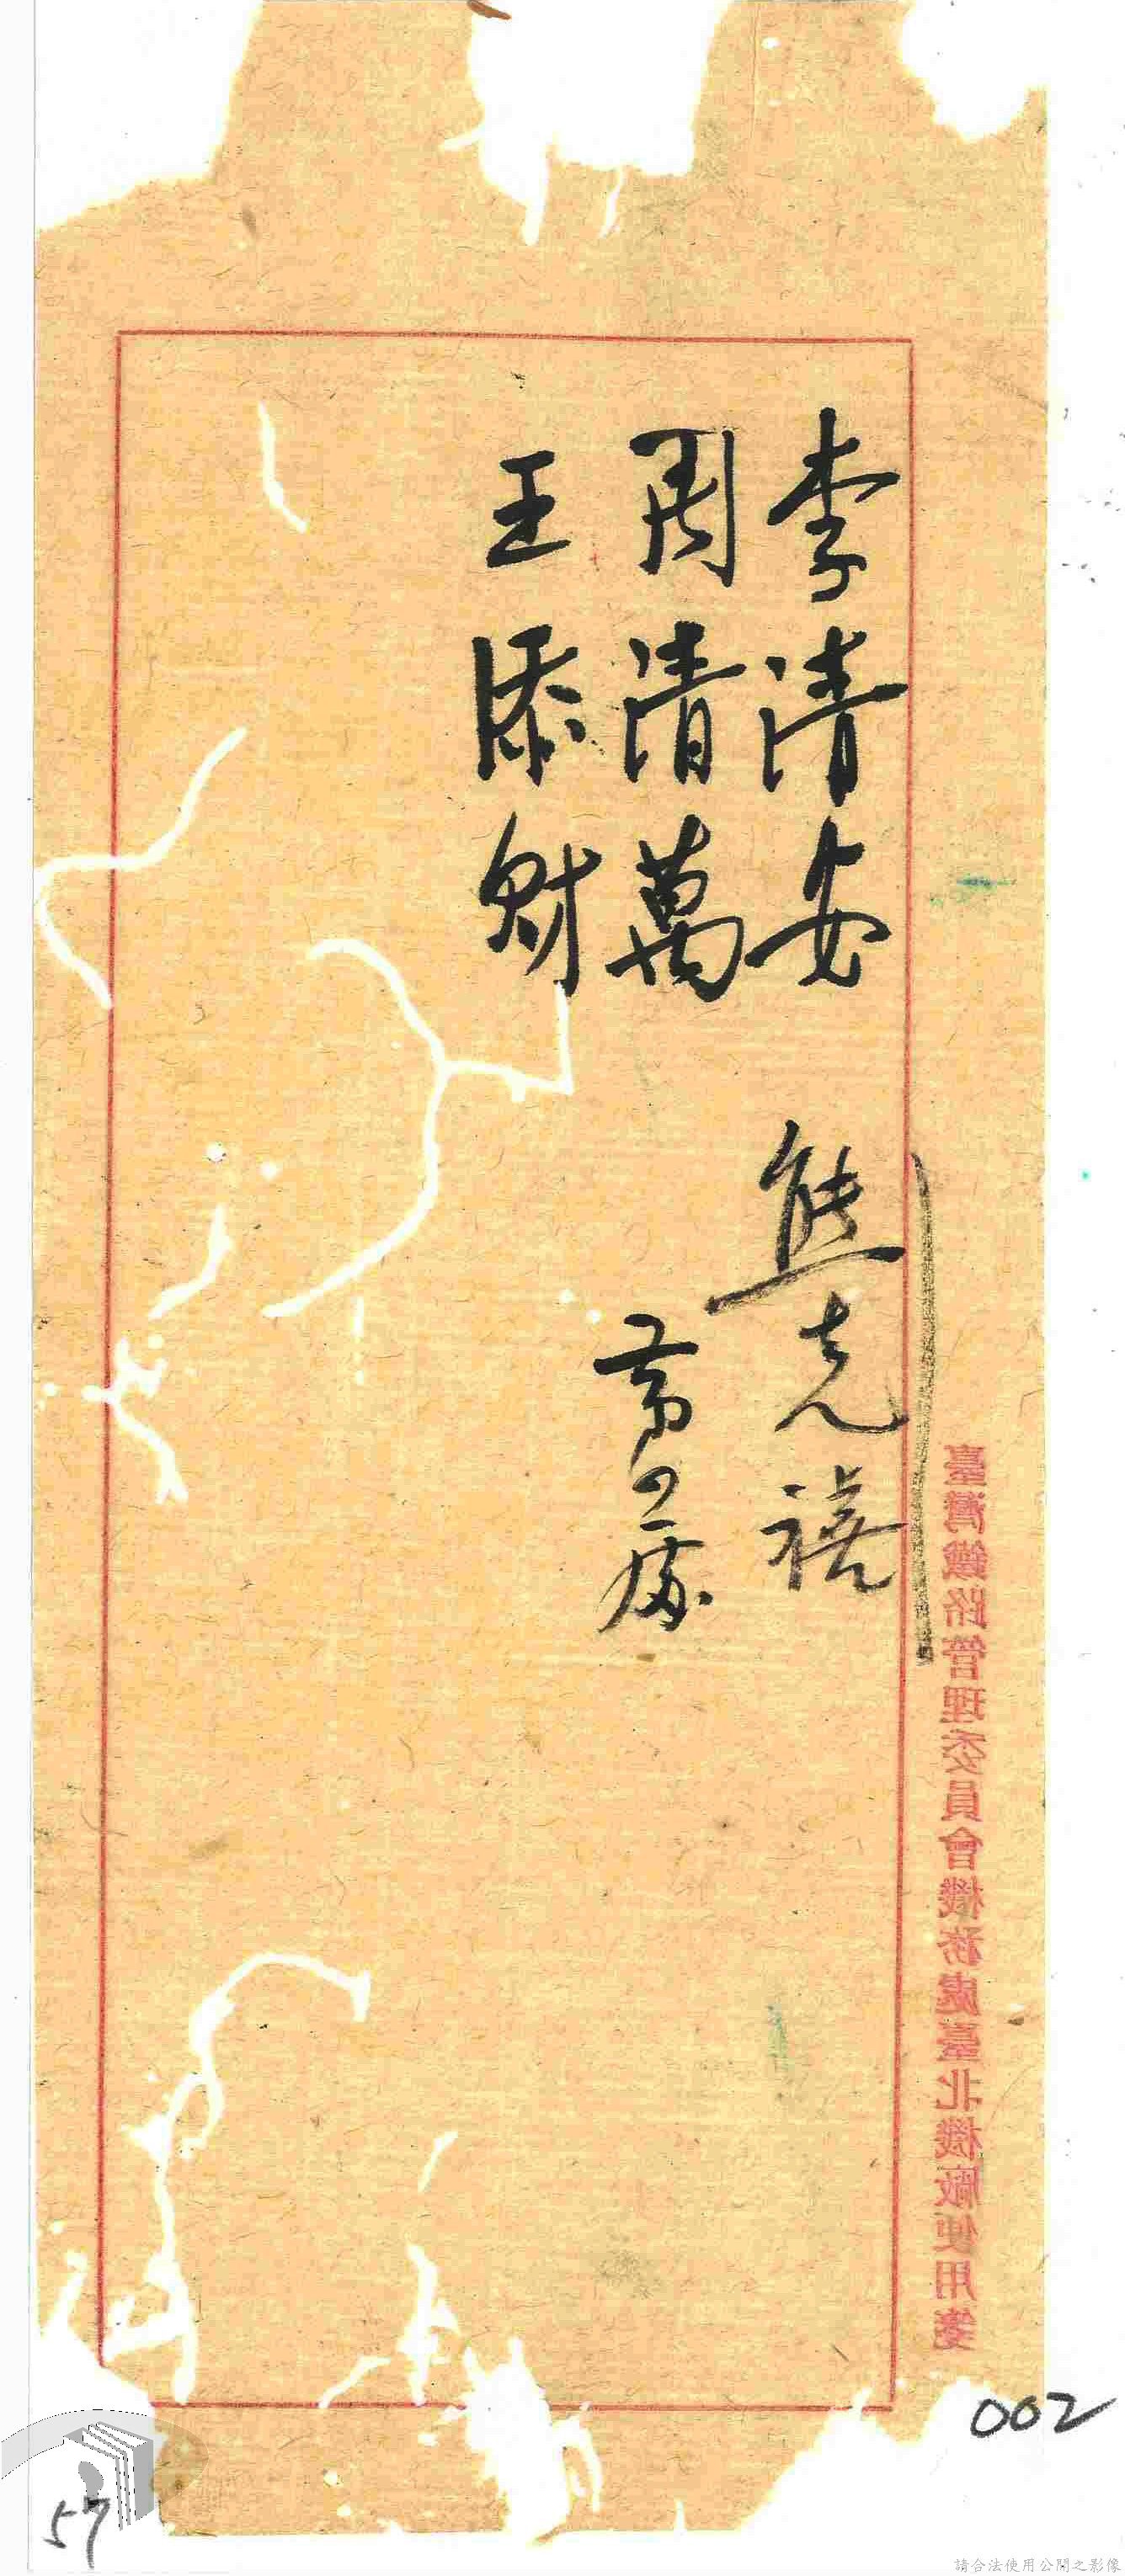 臺灣鐵路管理委員會機務處臺北機廠使用箋
李清安
熊克禧
周清萬
王添財
002
57
請合法使用公開之影像